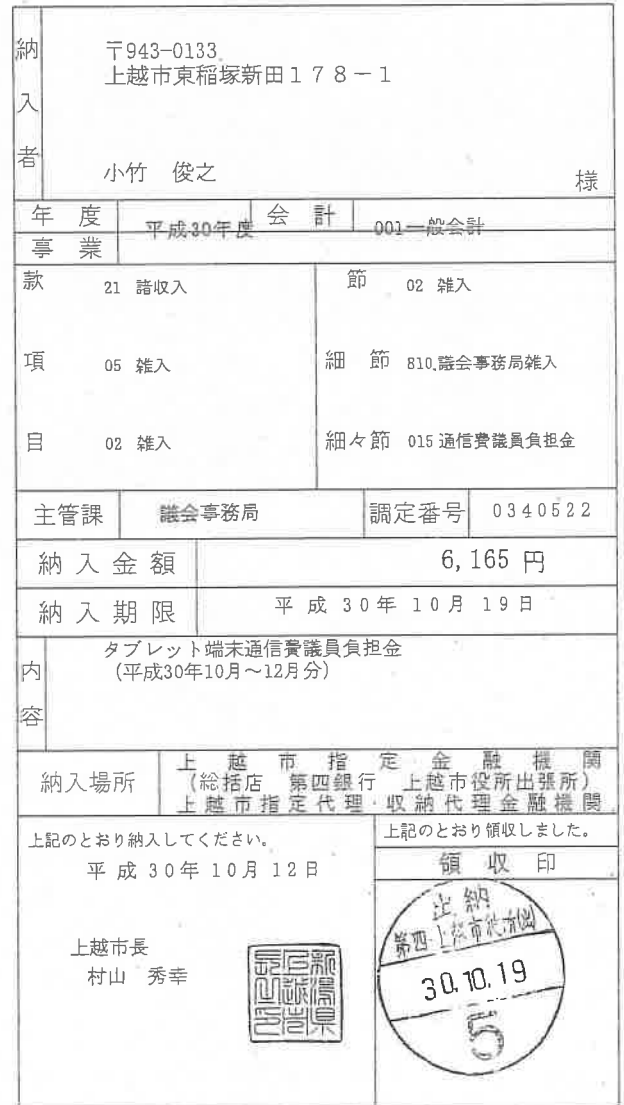 納入者
〒943-0133
上越市東稲塚新田178-1
小竹 俊之 様
年度 平成30年度 会計 001一般会計
事業
款 21 諸収入 節 02 雑入
項 05 雑入 細節 810 議会事務局雑入
目 02 雑入 細々節 015 通信費議員負担金
主管課 議会事務局 調定番号 0340522
納入金額 6,165 円
納入期限 平成30年10月19日
内容
タブレット端末通信費議員負担金
(平成30年10月～12月分)
納入場所
上越市指定金融機関
(総括店 第四銀行 上越市役所出張所)
上越市指定代理・収納代理金融機関
上記のとおり納入してください。
平成30年10月12日
上越市長
村山 秀幸
新潟県上越市長之印
上記のとおり領収しました。
領収印
出納
30.10.19
5